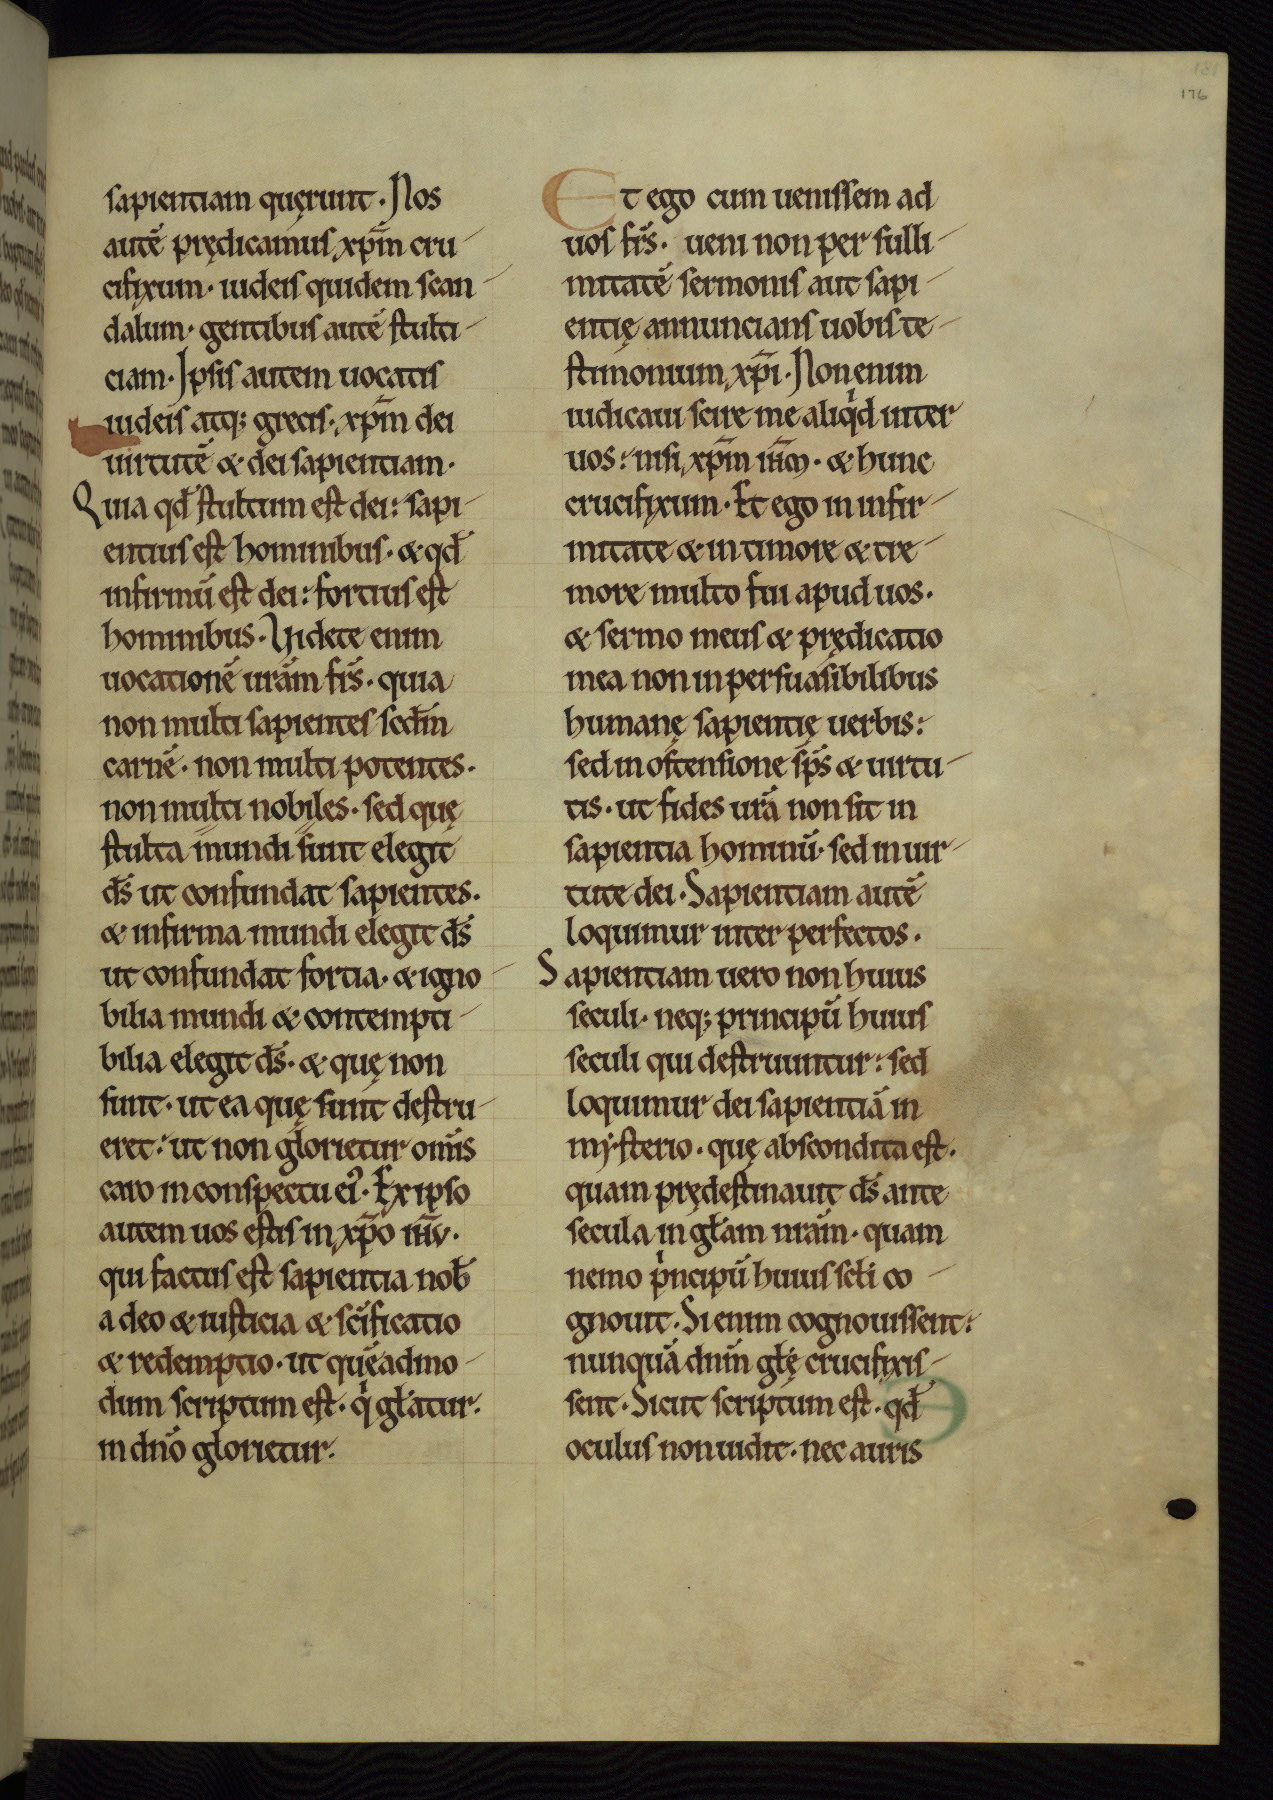 176
sapientiam quęrunt. Nos
autē prędicamus xp̄m cru
cifixum. iudeis quidem scan
dalum. gentibus autē stulti
ciam. Ipsis autem uocatis
iudeis atq; grecis. xp̄m dei
uirtutē & dei sapientiam.
Quia qđ stultum est dei: sapi
entius est hominibus. & qđ
infirmū est dei: fortius est
hominibus. Videte enim
uocationē urām frs̄. quia
non multi sapientes scđm
carnē. non multi potentes.
non multi nobiles. sed quę
stulta mundi sunt elegit
ds̄ ut confundat sapientes.
& infirma mundi elegit ds̄
ut confundat fortia. & igno
bilia mundi & contempti
bilia elegit ds̄. & quę non
sunt. ut ea quę sunt destru
eret: ut non glorietur omīs
caro in conspectu ei᾽. Ex ipso
autem uos estis in xp̄o ih̄v.
qui factus est sapientia nob̄
a deo & iusticia & sc̄ificatio
& redemptio. ut quēadmo
dum scriptum est. qⁱ głatur:
in dn̄o glorietur.
Et ego cum uenissem ad
uos frs̄. ueni non per subli
mitatē sermonis aut sapi
entię annuncians uobis te
stimonium xp̄i. Non enim
iudicaui scire me aliqⁱd inter
uos: nisi xp̄m ih̄m. & hunc
crucifixum. Et ego in infir
mitate & in timore & tre
more multo fui apud uos.
& sermo meus & prędicatio
mea non in persuasibilibus
humanę sapientię uerbis:
sed in ostensione sps̄ & uirtu
tis. ut fides urā non sit in
sapientia hominū. sed in uir
tute dei. Sapientiam autē
loquimur inter perfectos.
Sapientiam uero non huius
seculi. neq; principū huius
seculi qui destruuntur: sed
loquimur dei sapientiā in
mysterio. quę abscondita est.
quam prędestinauit ds̄ ante
secula in głam nrām. quam
nemo pⁱncipū huius scłi co
gnouit. Si enim cognouissent:
nunquā dnm̄ głę crucifixis
sent. Sicut scriptum est. qđ
oculus non uidit. nec auris